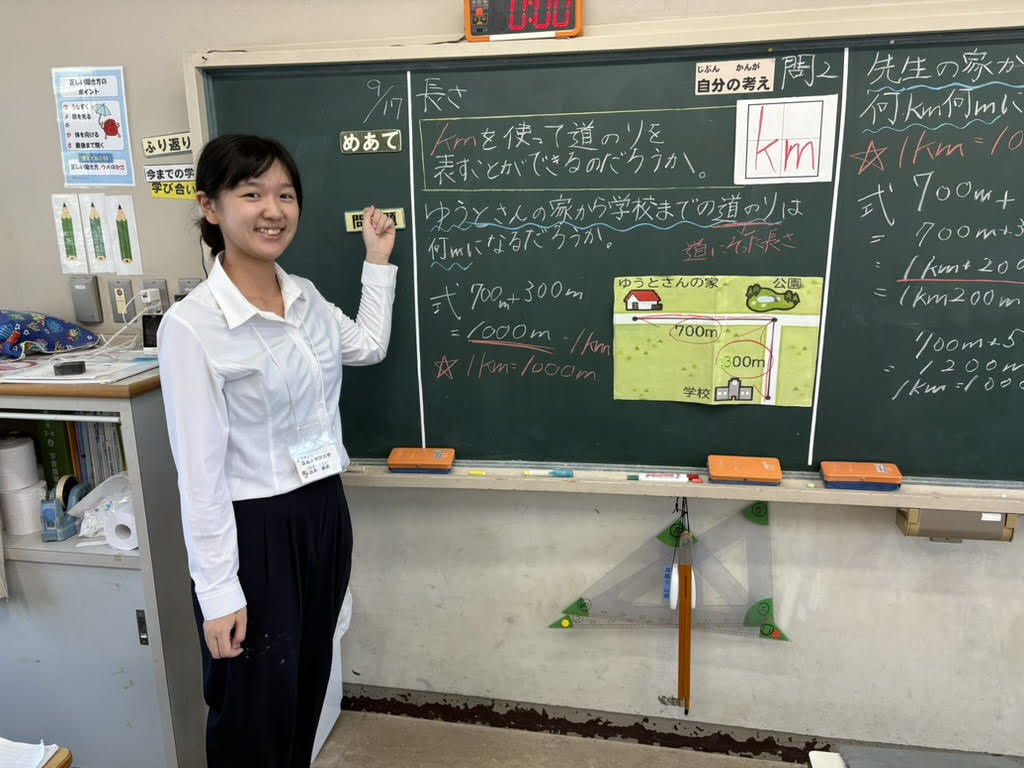 0:00
正しい聞き方の
ポイント
うなずく
目を見る
体を向ける
最後まで聞く
ふり返り
今までの学
学び合い
9/17
長さ
めあて
kmを使って道のりを
表すことができるのだろうか。
じぶん かんが
自分の考え
km
ゆうとさんの家から学校までの道のりは
何mになるだろうか。
道にそった長さ
式 700m+300m
=1000m=1km
☆1km=1000m
ゆうとさんの家
公園
700m
300m
学校
問2
先生の家か
何km何mに
☆1km=10
式 700m+
=700m+3
=1km+200
=1km200m
700m+5
=1200m
1km=1000